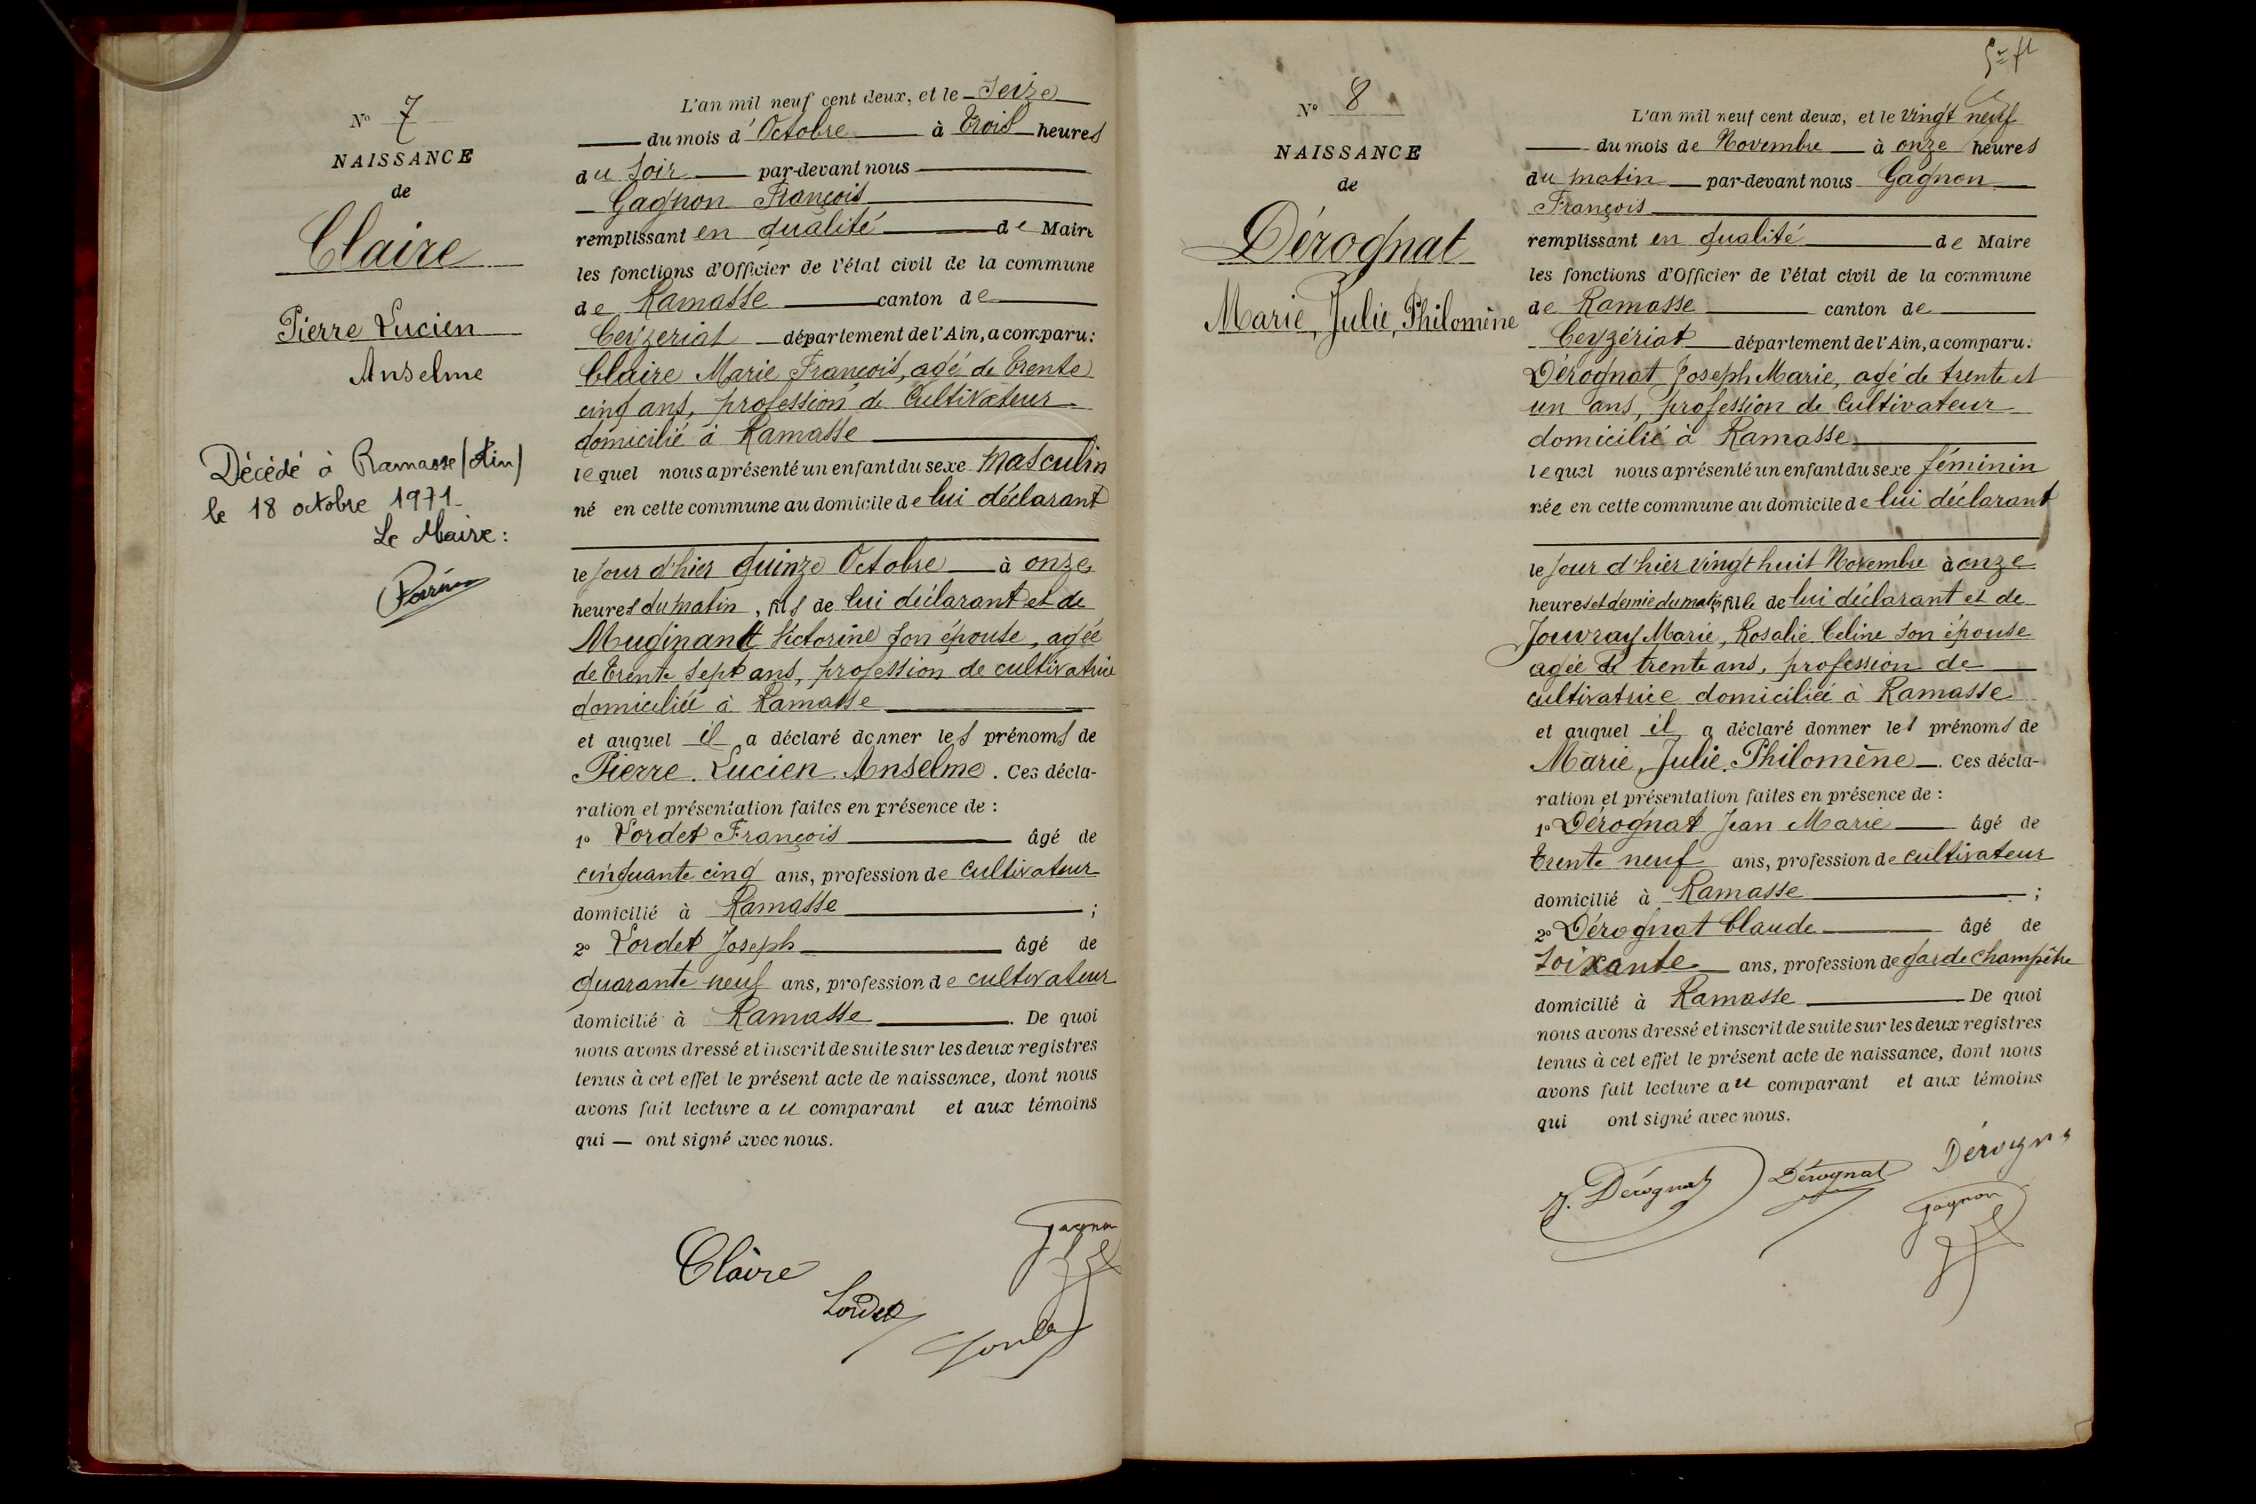 N° 7
NAISSANCE
de
Claire
Pierre Lucien
Anselme
Décédé à Ramasse (Ain)
le 18 octobre 1971-
Le Maire :
L'an mil neuf cent deux, et le Seize
du mois d'Octobre à trois heures
du soir par-devant nous
Gagnon François
remplissant en qualité de Maire
les fonctions d'Officier de l'état civil de la commune
de Ramasse canton de
Ceyzeriat département de l'Ain, a comparu :
Claire Marie François, agé de trente
cinq ans, profession de Cultivateur
domicilié à Ramasse
lequel nous a présenté un enfant du sexe masculin
né en cette commune au domicile de lui déclarant
le jour d'hier quinze Octobre à onze
heures du matin, fils de lui déclarant et de
Muginant Victorine son épouse, agée
de trente sept ans, profession de cultivatrice
domiciliée à Ramasse
et auquel il a déclaré donner les prénoms de
Pierre. Lucien. Anselme. Ces décla-
ration et présentation faites en présence de :
1° Lordet François âgé de
cinquante cinq ans, profession de cultivateur
domicilié à Ramasse ;
2° Lordet Joseph âgé de
quarante neuf ans, profession de cultivateur
domicilié à Ramasse. De quoi
nous avons dressé et inscrit de suite sur les deux registres
tenus à cet effet le présent acte de naissance, dont nous
avons fait lecture au comparant et aux témoins
qui — ont signé avec nous.
Gagnon
Claire
Lordet
5e ft
N° 8
NAISSANCE
de
Dérognat
Marie, Julie, Philomène
L'an mil neuf cent deux, et le vingt neuf
du mois de Novembre à onze heures
du matin par-devant nous Gagnon
François
remplissant en qualité de Maire
les fonctions d'Officier de l'état civil de la commune
de Ramasse canton de
Ceyzériat département de l'Ain, a comparu :
Dérognat Joseph Marie, agé de trente et
un ans, profession de Cultivateur
domicilié à Ramasse
lequel nous a présenté un enfant du sexe féminin
née en cette commune au domicile de lui déclarant
le jour d'hier vingt huit Novembre à onze
heures et demie du matin, fille de lui déclarant et de
Jouvray Marie, Rosalie Celine son épouse
agée de trente ans, profession de
cultivatrice domiciliée à Ramasse
et auquel il a déclaré donner les prénoms de
Marie, Julie. Philomène. Ces décla-
ration et présentation faites en présence de :
1° Dérognat Jean Marie âgé de
trente neuf ans, profession de cultivateur
domicilié à Ramasse ;
2° Dérognat Claude âgé de
soixante ans, profession de garde champêtre
domicilié à Ramasse De quoi
nous avons dressé et inscrit de suite sur les deux registres
tenus à cet effet le présent acte de naissance, dont nous
avons fait lecture au comparant et aux témoins
qui ont signé avec nous.
J. Dérognat Dérognat Dérogna
Gagnon